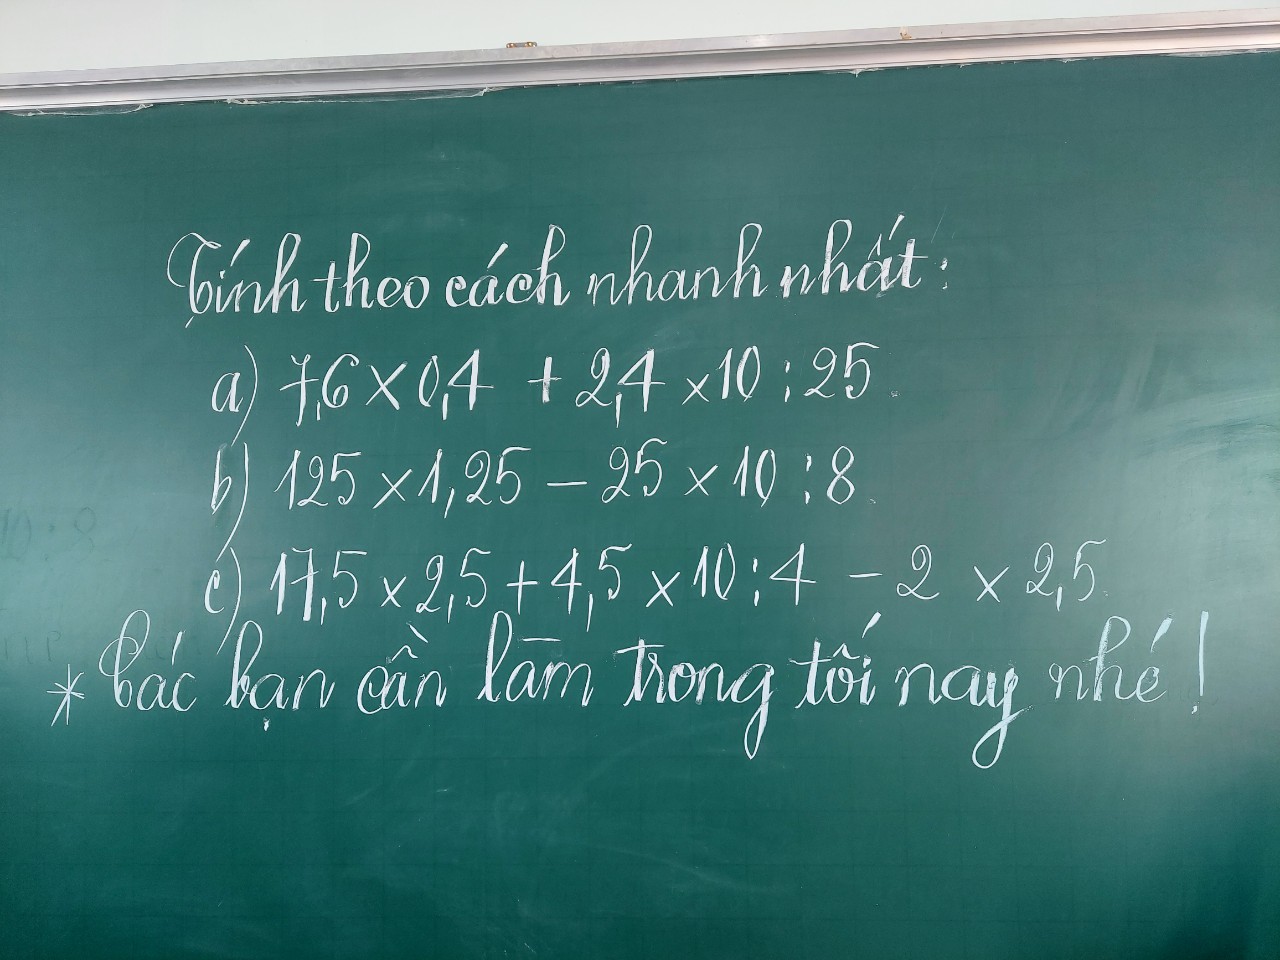 Tính theo cách nhanh nhất:
a) 7,6 × 0,4 + 2,4 × 10 : 25
b) 125 × 1,25 - 25 × 10 : 8
c) 17,5 × 2,5 + 4,5 × 10 : 4 - 2 × 2,5
* Các bạn cần làm trong tối nay nhé!